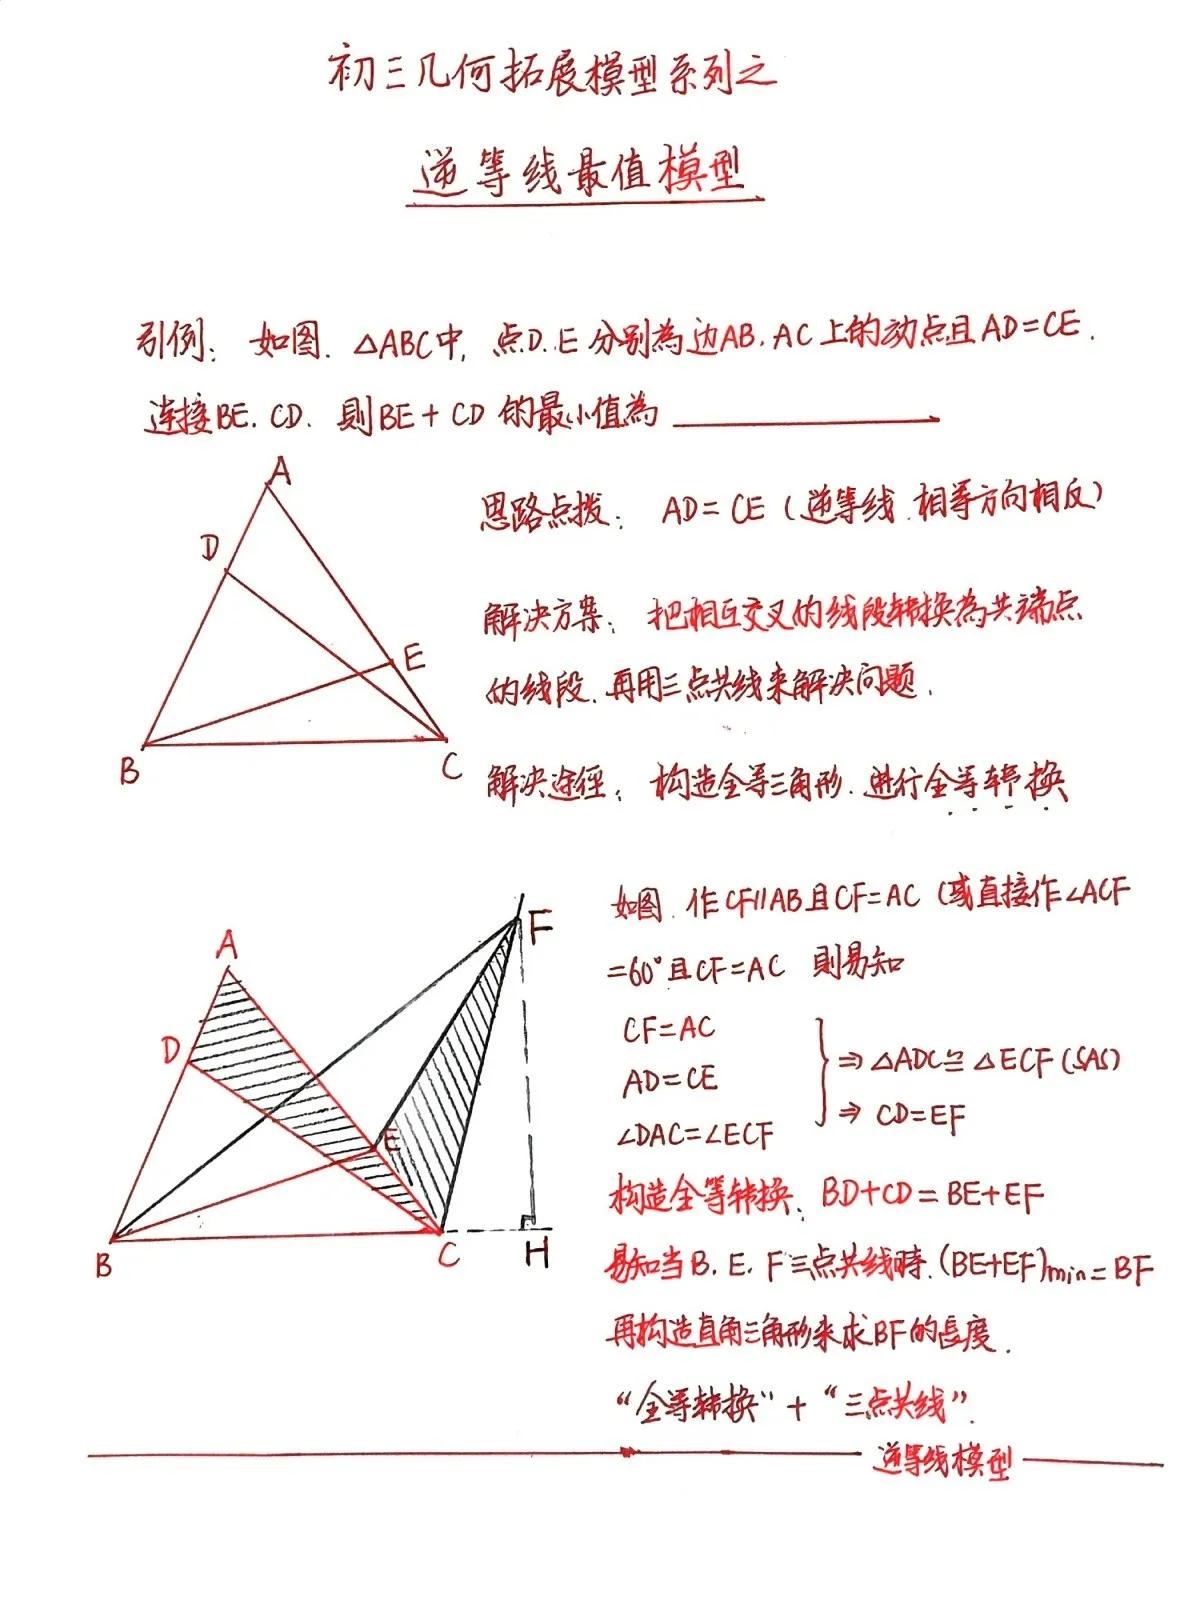 初三几何拓展模型系列之
逆等线最值模型
引例: 如图. △ABC中, 点D.E分别為边AB.AC上的动点且AD=CE.
连接BE.CD. 则BE+CD的最小值為
A
D
E
B
C
思路点拨: AD=CE(逆等线.相等方向相反)
解决方案: 把相互交叉的线段转换為共端点
的线段.再用三点共线来解决问题.
解决途径: 构造全等三角形.进行全等转换
如图.作CF∥AB且CF=AC(或直接作∠ACF
=60°且CF=AC 則易知
CF=AC
AD=CE
∠DAC=∠ECF
⇒△ADC≌△ECF(SAS)
⇒ CD=EF
构造全等转换: BD+CD=BE+EF
易知当B.E.F三点共线時.(BE+EF)min=BF
再构造直角三角形来求BF的長度.
“全等转换”+“三点共线”.
A
D
F
E
B
C
H
逆等线模型